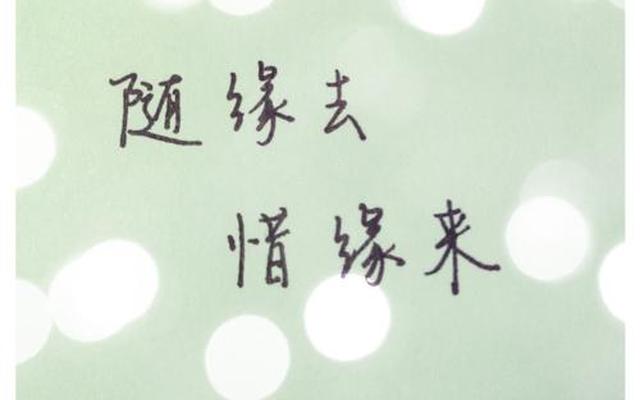 随缘去
惜缘来